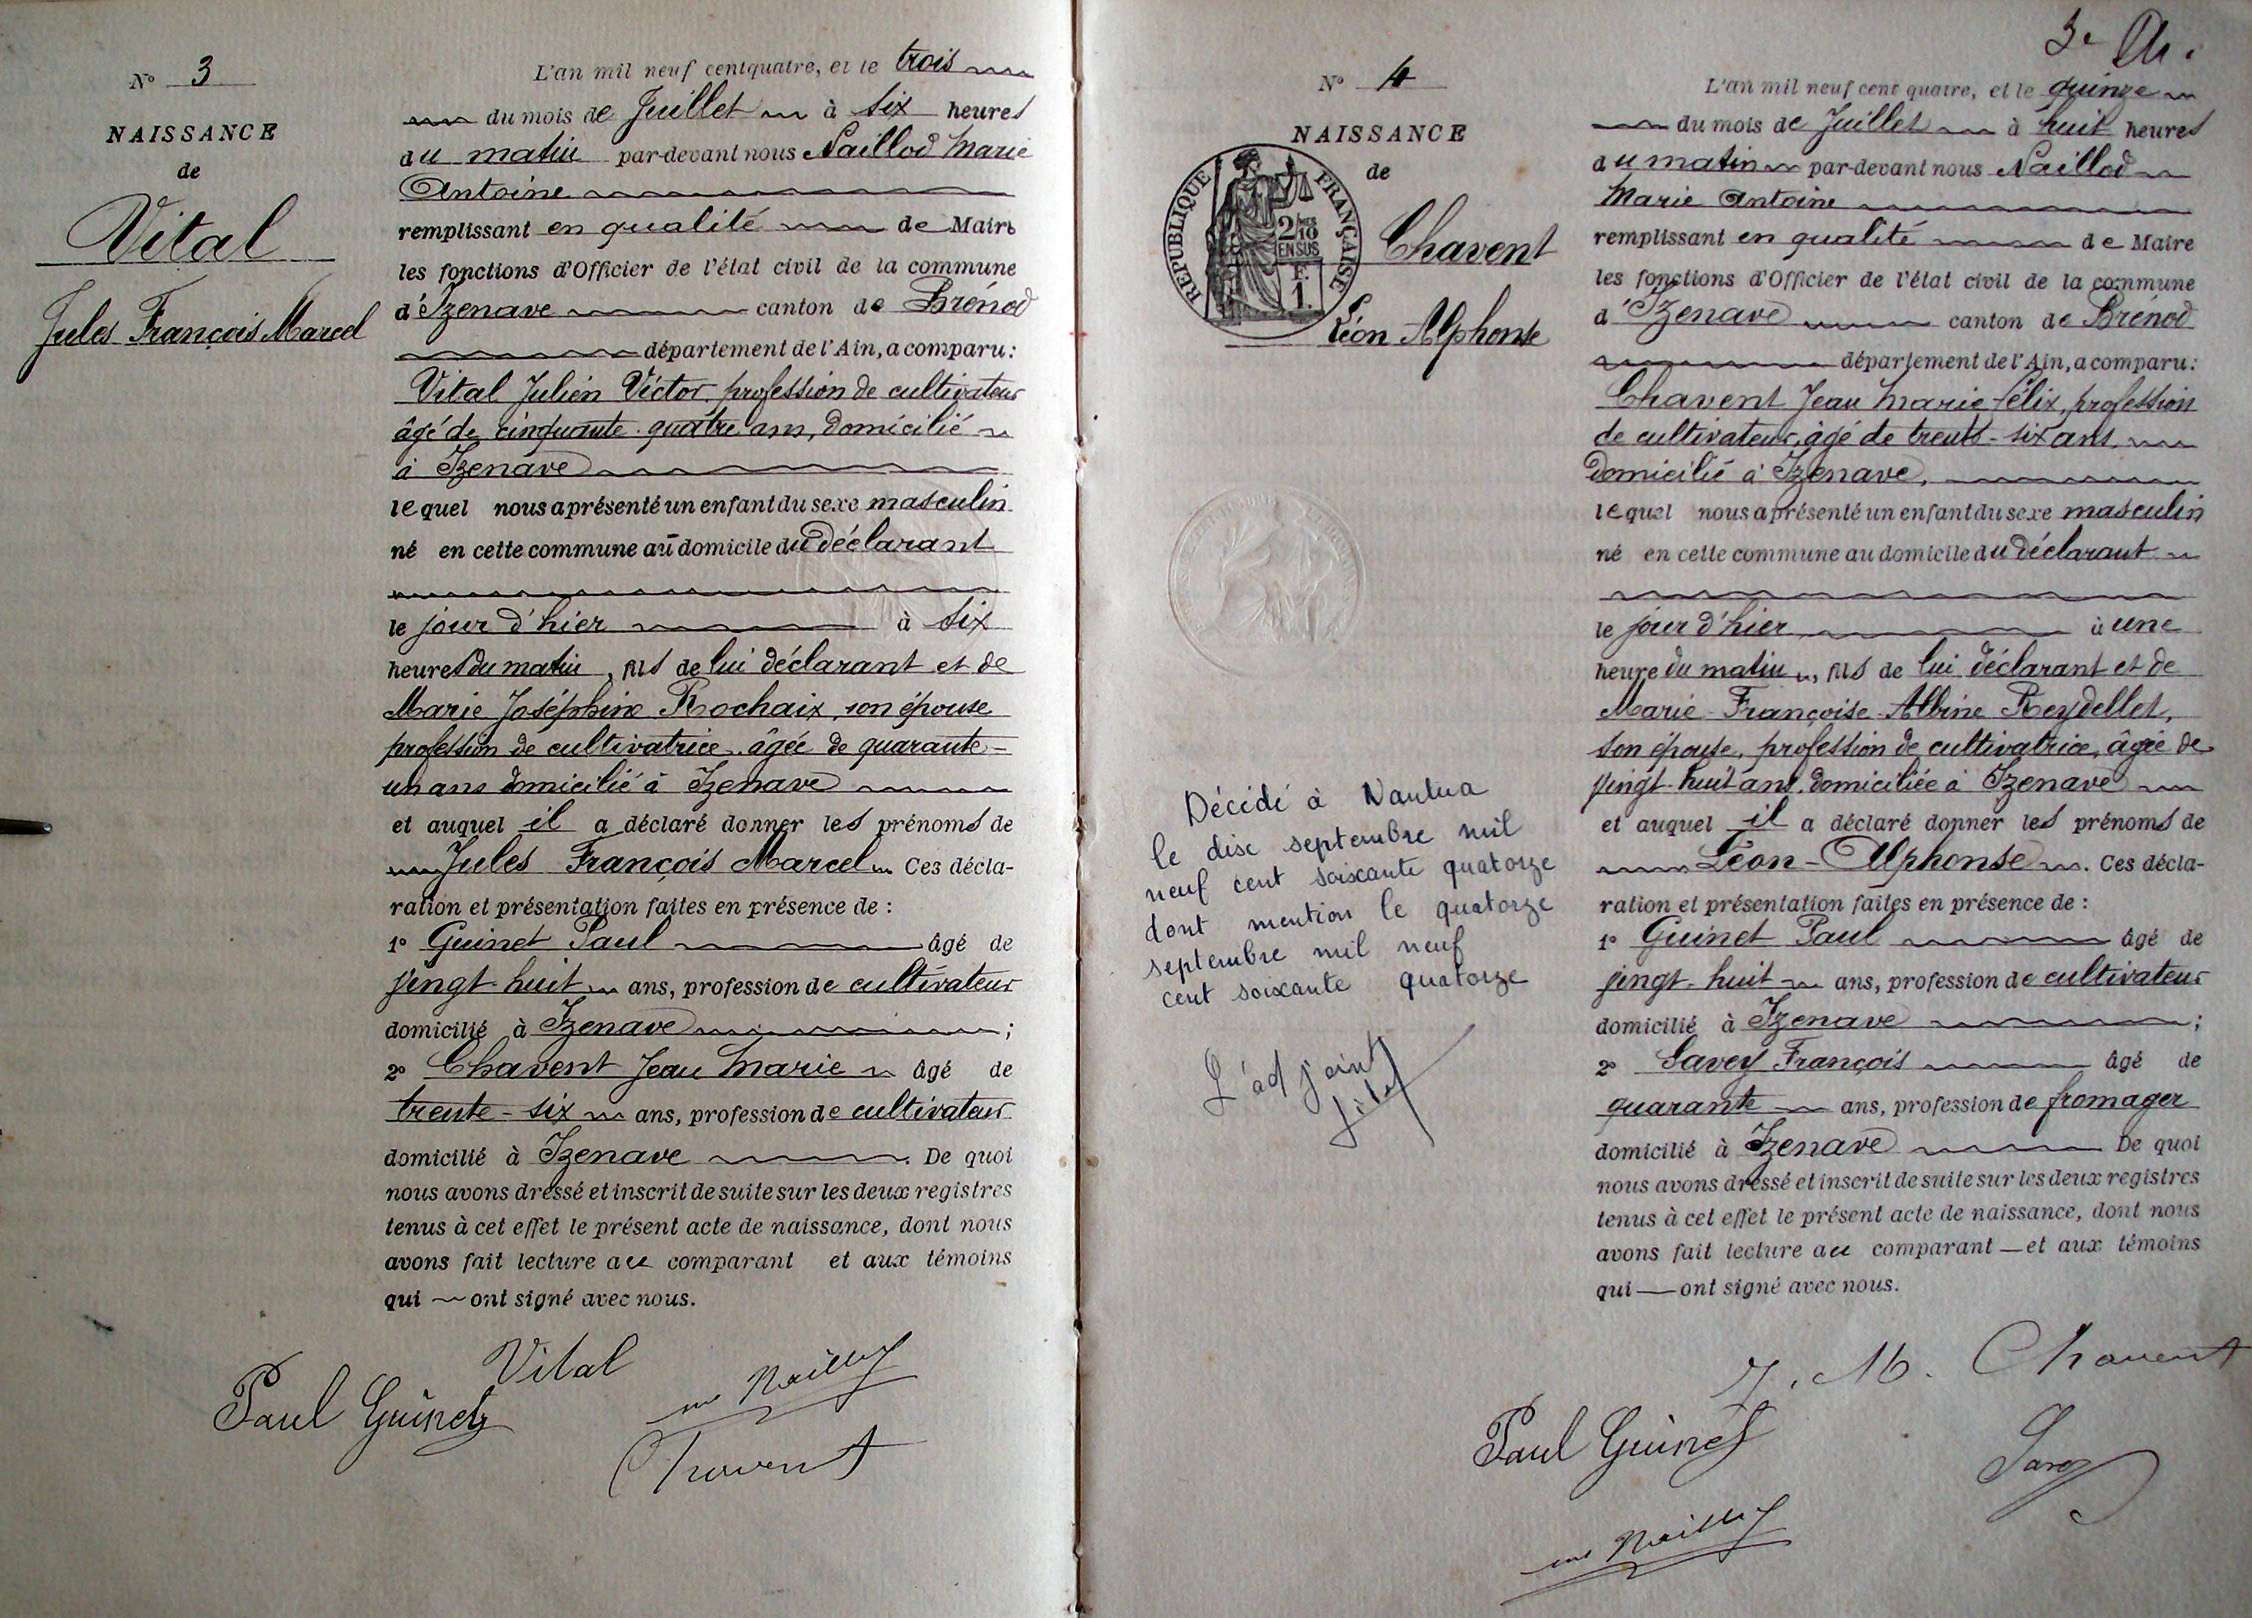 N° 3
NAISSANCE
de
Vital
Jules François Marcel
L'an mil neuf cent quatre, et le trois
du mois de Juillet à six heures
du matin par-devant nous Naillod Marie
Antoine
remplissant en qualité de Maire
les fonctions d'Officier de l'état civil de la commune
d'Izenave canton de Brénod
département de l'Ain, a comparu:
Vital Julien Victor, profession de cultivateur
âgé de cinquante-quatre ans, domicilié
à Izenave
lequel nous a présenté un enfant du sexe masculin
né en cette commune au domicile du déclarant
le jour d'hier à six
heures du matin, fils de lui déclarant et de
Marie Joséphine Rochaix, son épouse
profession de cultivatrice, âgée de quarante-
un ans domicilié à Izenave
et auquel il a déclaré donner les prénoms de
Jules François Marcel Ces décla-
ration et présentation faites en présence de :
1° Guinet Paul âgé de
vingt-huit ans, profession de cultivateur
domicilié à Izenave ;
2° Chavent Jean Marie âgé de
trente-six ans, profession de cultivateur
domicilié à Izenave . De quoi
nous avons dressé et inscrit de suite sur les deux registres
tenus à cet effet le présent acte de naissance, dont nous
avons fait lecture au comparant et aux témoins
qui ont signé avec nous.
Vital
Paul Guinet
Naillod
Chavent
3e
N° 4
NAISSANCE
de
Chavent
Léon Alphonse
REPUBLIQUE FRANÇAISE
2/10
EN SUS
F.
1.
Décédé à Nantua
le dix septembre mil
neuf cent soixante quatorze
dont mention le quatorze
septembre mil neuf
cent soixante quatorze
L'adjoint
L'an mil neuf cent quatre, et le quinze
du mois de Juillet à huit heures
du matin par-devant nous Naillod
Marie Antoine
remplissant en qualité de Maire
les fonctions d'Officier de l'état civil de la commune
d'Izenave canton de Brénod
département de l'Ain, a comparu:
Chavent Jean Marie félix, profession
de cultivateur, âgé de trente-six ans
domicilié à Izenave,
lequel nous a présenté un enfant du sexe masculin
né en cette commune au domicile du déclarant
le jour d'hier à une
heure du matin, fils de lui déclarant et de
Marie-Françoise-Albine Reydellet,
son épouse, profession de cultivatrice, âgée de
vingt-huit ans, domiciliée à Izenave
et auquel il a déclaré donner les prénoms de
Léon-Alphonse . Ces décla-
ration et présentation faites en présence de :
1° Guinet Paul âgé de
vingt-huit ans, profession de cultivateur
domicilié à Izenave ;
2° Savey François âgé de
quarante ans, profession de fromager
domicilié à Izenave De quoi
nous avons dressé et inscrit de suite sur les deux registres
tenus à cet effet le présent acte de naissance, dont nous
avons fait lecture au comparant et aux témoins
qui ont signé avec nous.
J. M. Chavent
Paul Guinet
Savey
Naillod